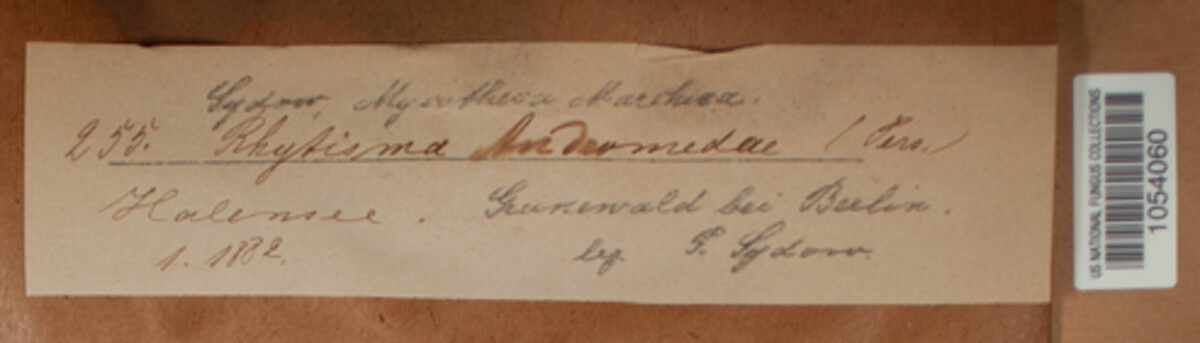 Sydow, Mycotheca Marchica.
255. Rhytisma Andromedae (Pers.)
Halensee. Grunewald bei Berlin.
1. 1882. leg. P. Sydow.
US NATIONAL FUNGUS COLLECTIONS
1054060